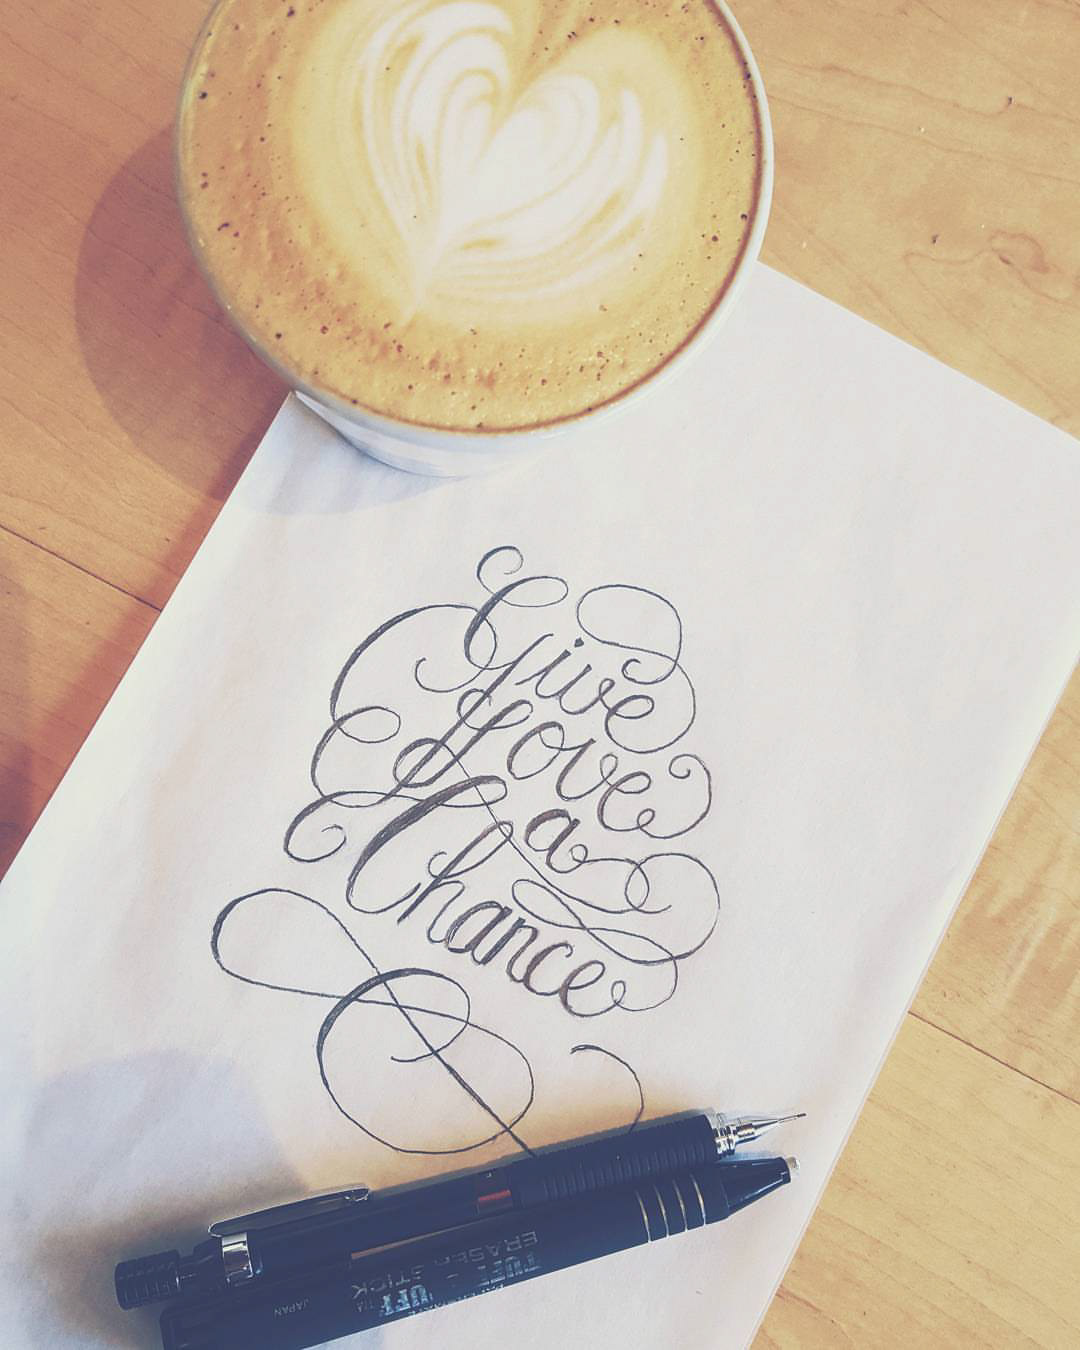 Give
Love
a
Chance
TUFF STUFF
ERASER STICK
JAPAN